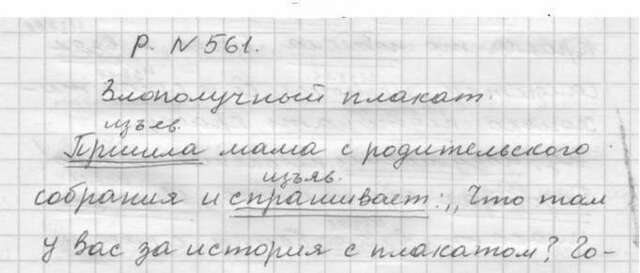 Р. N 561.
Злополучный плакат.
изъев.
Пришла мама с родительского
изъяв.
собрания и спрашивает: „Что там
у вас за история с плакатом? Го-